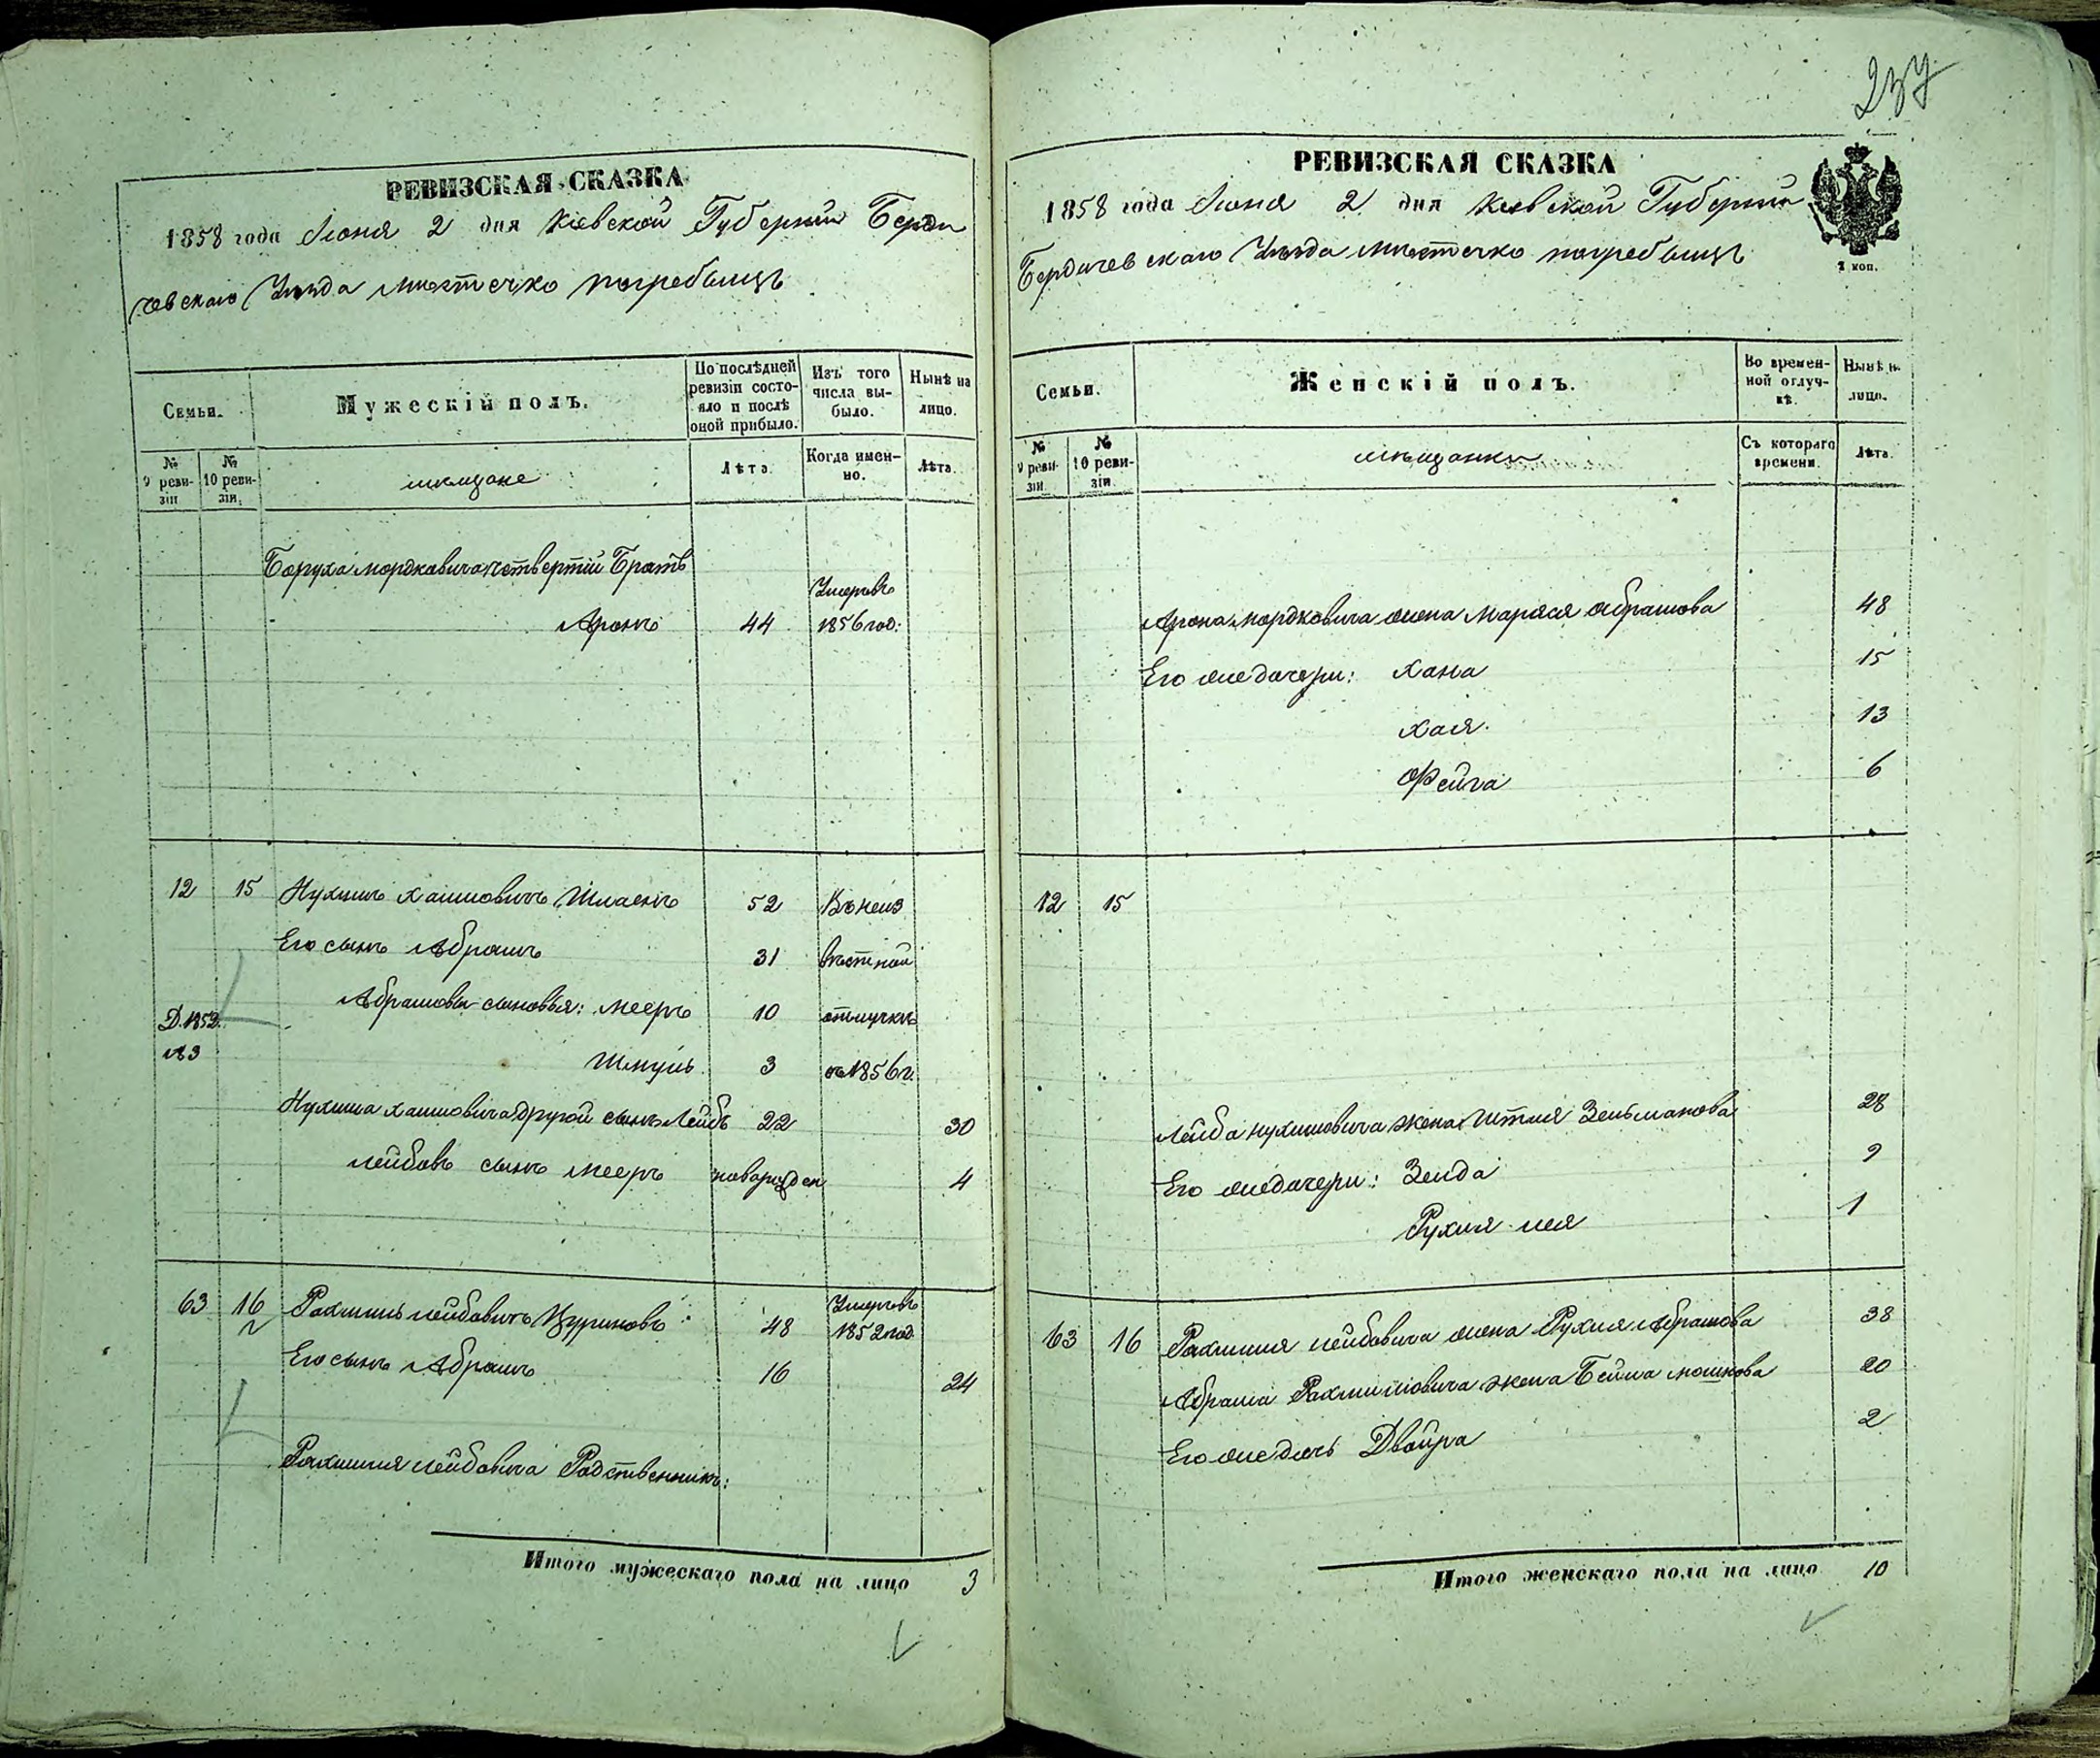 237
РЕВИЗСКАЯ СКАЗКА
1858 года Июня 2 дня Кіевской Губерніи Берди
чевскаго Уезда местечко погребыщъ
Семьи.
Мужескій полъ.
По послѣдней ревизіи состо-
яло и послѣ
оной прибыло.
Изъ того
числа вы-
было.
Нынѣ на
лицо.
№
9 реви-
зіи
№
10 реви-
зіи.
мещане
Лѣта.
Когда имен-
но.
Лѣта.
Боруха мордковича четвертій Братъ
Умеръ
Аронъ 44 1856 год:
12 15 Нухимъ Хаимовичъ 52 Въ неиз
Его сынъ Абрамъ 31 вестной
Абрамовы сыновья: Мееръ 10 отлучке
Д. 1852.
№3
Шмуль 3 съ 1856 г.
Нухима Хаимовича другой сынъ Лейбъ 22 30
Лейбовъ сынъ Мееръ новорожден 4
63 16 Рахмиль лейбовичъ Цуриновъ 48 Умеръ 1852 год.
Его сынъ Абрамъ 16 24
Рахмиля лейбовича Родственникъ:
Итого мужескаго пола на лицо 3
РЕВИЗСКАЯ СКАЗКА
1858 года Июня 2 дня Кіевской Губерніи
Бердичевскаго Уезда местечко погребыщъ
2 коп.
Семьи.
Женскій полъ.
Во времен-
ной отлуч-
кѣ.
Нынѣ н.
лицо.
№
9 реви-
зіи
№
10 реви-
зіи
мещанки
Съ котораго
времени.
Лѣта.
Арона мордковича жена Маряся Абрамова 48
Его же дочери: Хана 15
Хая 13
Фейга 6
12 15
Лейба нухимовича жена Итля Зельманова 28
Его же дочери: Зелда 9
Рухля лея 1
63 16 Рахмиля лейбовича жена Рухля Абрамова 38
Абрама Рахмиловича жена Бейла мошкова 20
Его же дочь Двойра 2
Итого женскаго пола на лицо 10